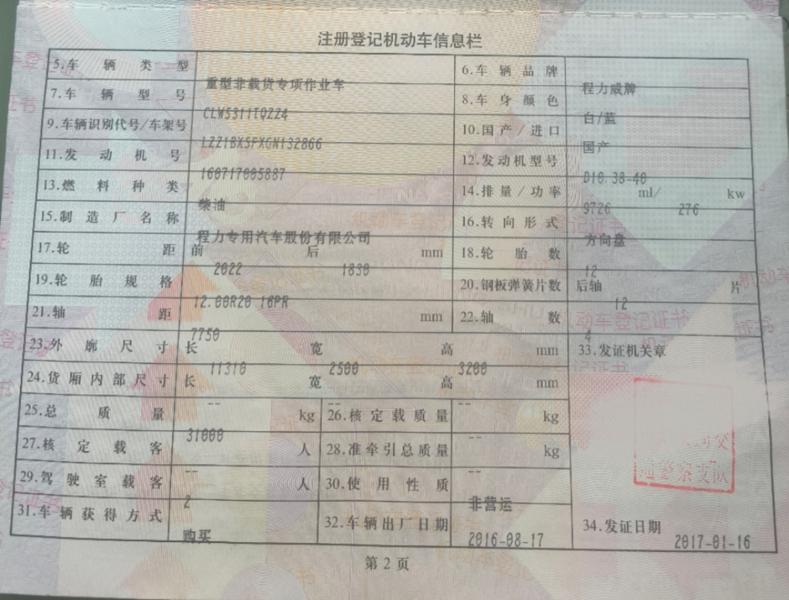 注册登记机动车信息栏
5.车辆类型 重型非载货专项作业车 6.车辆品牌 程力威牌
7.车辆型号 CLW5311TQZZ4 8.车身颜色 白/蓝
9.车辆识别代号/车架号 LZZ1BXSFXGN132866 10.国产/进口 国产
11.发动机号 160717005887 12.发动机型号 D10.38-40
13.燃料种类 柴油 14.排量/功率 9726 ml/ 276 kw
15.制造厂名称 程力专用汽车股份有限公司 16.转向形式 方向盘
17.轮距 前 2022 后 1830 mm 18.轮胎数 12
19.轮胎规格 12.00R20 16PR 20.钢板弹簧片数 后轴 12 片
21.轴距 7750 mm 22.轴数 4
23.外廓尺寸 长 11310 宽 2500 高 3200 mm 33.发证机关章
24.货厢内部尺寸 长 -- 宽 -- 高 -- mm
25.总质量 31000 kg 26.核定载质量 -- kg
27.核定载客 -- 人 28.准牵引总质量 -- kg
29.驾驶室载客 2 人 30.使用性质 非营运
31.车辆获得方式 购买 32.车辆出厂日期 2016-08-17 34.发证日期 2017-01-16
第2页